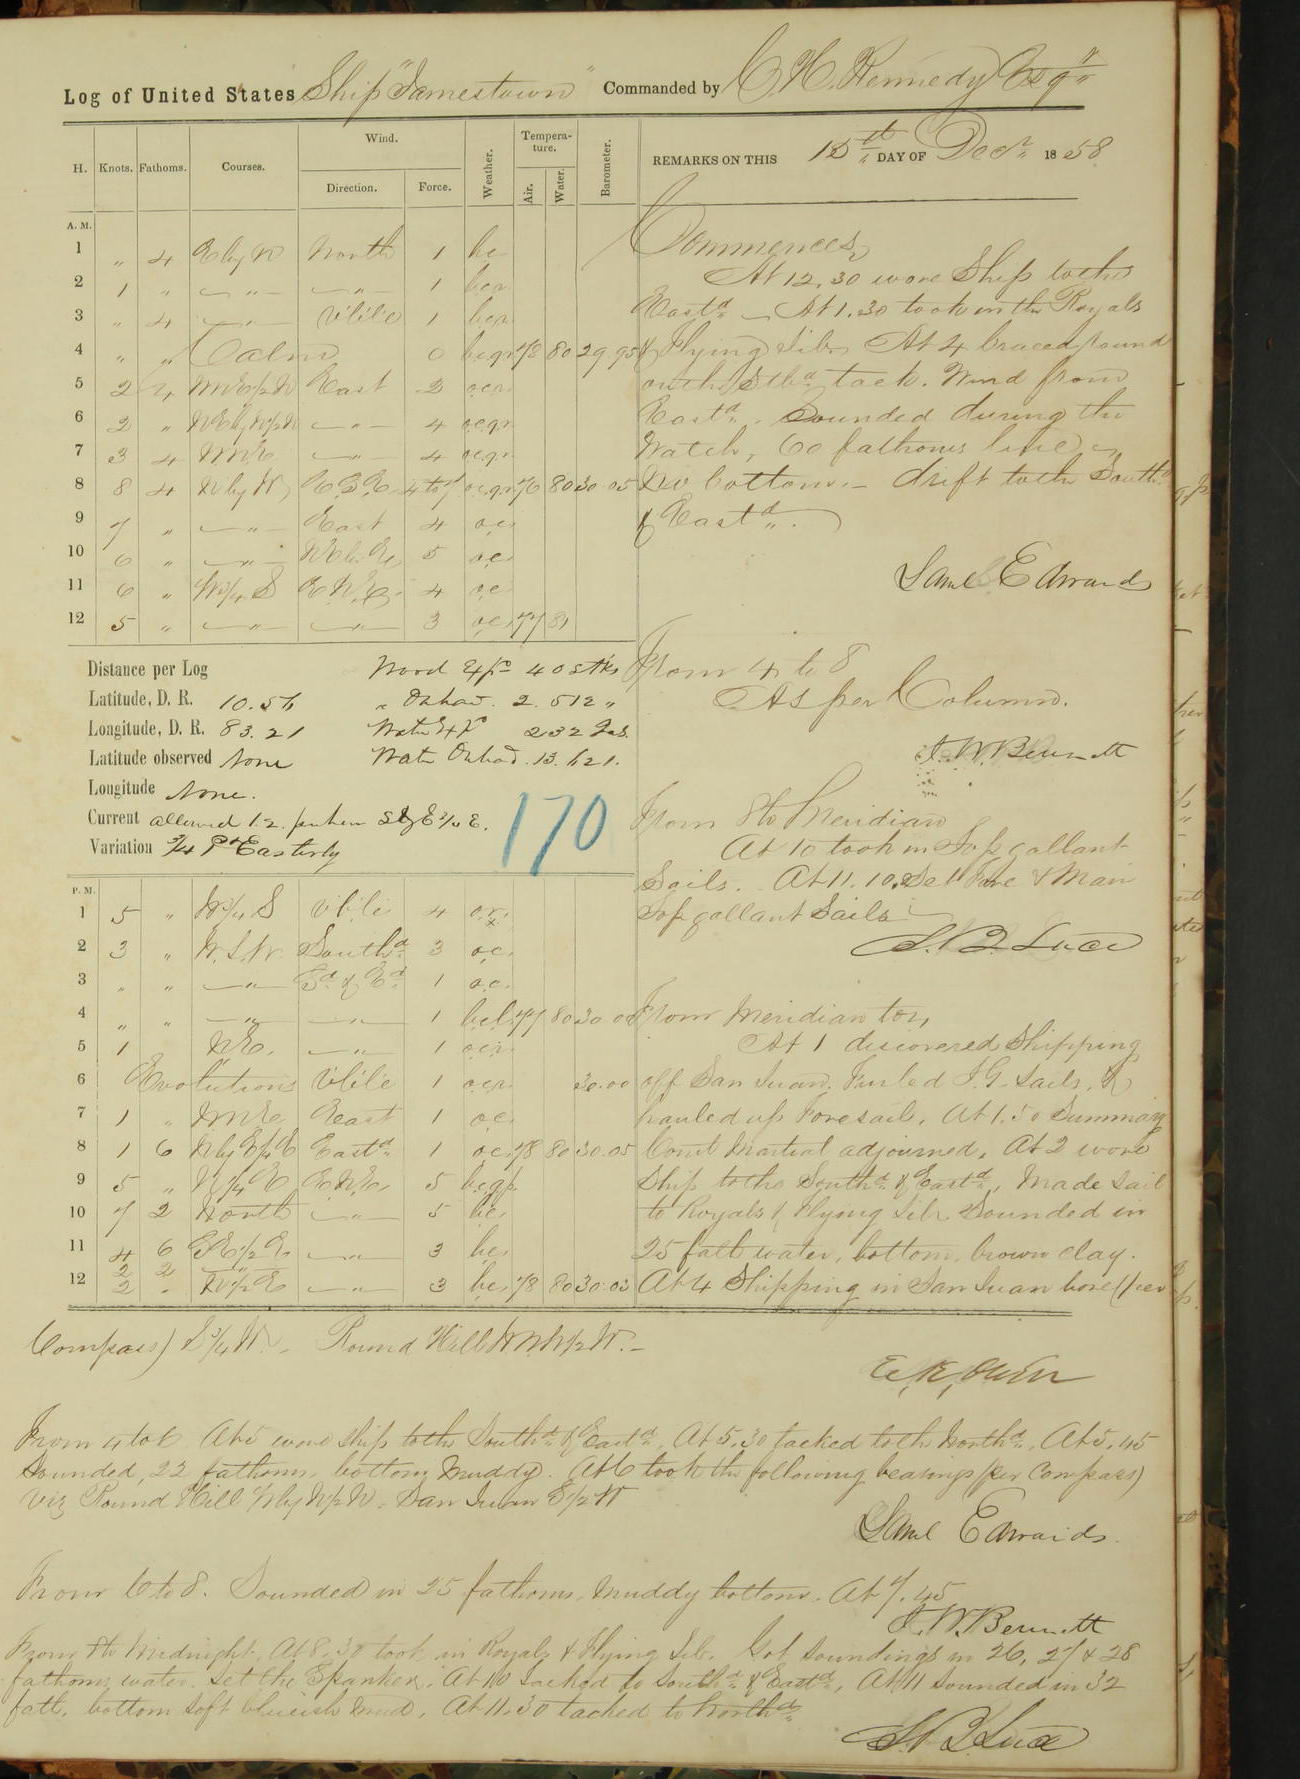 Log of United States Ship "Jamestown" Commanded by C. H. Kennedy Esqr
H. Knots. Fathoms. Courses. Wind. Direction. Force. Weather. Tempera-ture. Air. Water. Barometer. REMARKS ON THIS 15th DAY OF Decr 1858
A. M.
1 " 4 E by N North 1 bc
2 1 " " " 1 bcq
3 " 4 " V'ble 1
4 " " Calm 0 78 80 29.95
5 2 4 East 2
6 3 " " 4 ocqr
7 3 4 NNE " 4 ocqr
8 8 4 N by W E.S.E. 4 to 7 ocqr 76 80 30.05
9 7 " " East 4 oc
10 6 " " 5 oc
11 6 " W 3/4 S E.N.E. 4 oc
12 5 " " " 3 oc 77 81
Commences
At 12.30 wore Ship to the
Eastd At 1.30 took in the Royals
& Flying Jib. At 4 braced round
on the Stbd tack. Wind from
Eastd. Sounded during the
Watch, 60 fathoms line
No bottom. drift to the Southd
& Eastd.
Saml Edwards
From 4 to 8
As per Column.
J. W. Bennett
From 8 to Meridian
At 10 took in Topgallant
Sails. At 11.10 Set Fore & Main
Topgallant Sails
S. B. Luce
Distance per Log Wood Exp 40 Stks
Latitude, D. R. 10.56 " Onbod. 2.512 "
Longitude, D. R. 83.21 Water Exp 232 Gals.
Latitude observed None Water Onbod. 13.621.
Longitude None.
Current allowed 1.2 per hour S by E 3/4 E.
Variation 3/4 Pt Easterly
170
P. M.
1 5 " W 3/4 S V'ble 4
2 3 " W.S.W. Southd 3 oc
3 " " " Sd & Ed 1 oc
4 " " " " 1 77 80 30.00
5 1 NE. " 1 ocr
6 Evolutions V'ble 1 ocr 30.00
7 1 " NNE East 1 oc
8 1 6 Eastd 1 oc 78 80 30.05
9 5 " N 3/4 E ENE 5 bcqp
10 7 2 North " 5 bc
11 4 6 SE 1/2 E " 3 bc
2 2 "
12 2 " N 1/2 E " 3 bc 78 80 30.03
From Meridian to 4
At 1 discovered Shipping
off San Juan. Furled T.G. Sails, &
hauled up Foresail. At 1.50 Summary
Court Martial adjourned. At 2 wore
Ship to the Southd & Eastd, Made Sail
to Royals & Flying Jib. Sounded in
25 fath water, bottom, brown clay.
At 4 Shipping in San Juan bore (per
Compass) S 3/4 W. Round Hill WNW 1/2 W.
E. K. Owen
From 4 to 6 At 5 wore ship to the Southd & Eastd. At 5.30 tacked to the Northd. At 5.45
Sounded, 22 fathoms, bottom, Muddy. At 6 took the following bearings (per Compass)
Viz Round Hill W by N 1/2 N. San Juan S 1/2 W
Saml Edwards.
From 6 to 8. Sounded in 25 fathoms, muddy bottom. At 7.45
J. W. Bennett
From 8 to Midnight. At 8.30 took in Royals & Flying Jib. Got soundings in 26, 27 & 28
fathoms water. Set the Spanker. At 10 tacked to Southd & Eastd. At 11 sounded in 32
fath. bottom soft blueish mud. At 11.30 tacked to Northd
S. B. Luce